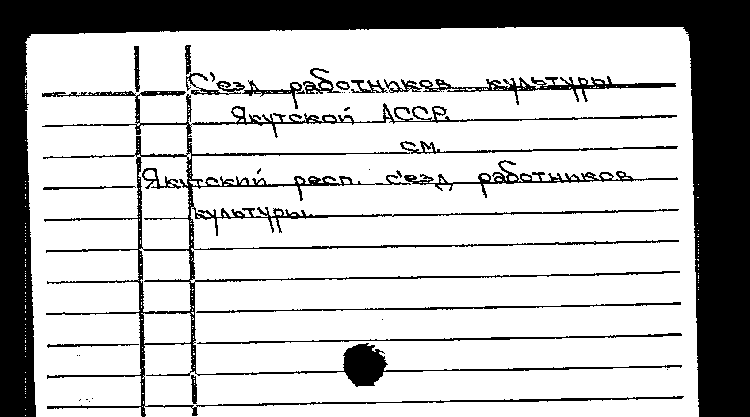 С'езд работников культуры
Якутской АССР.
см.
Якутский респ. с'езд работников
культуры.